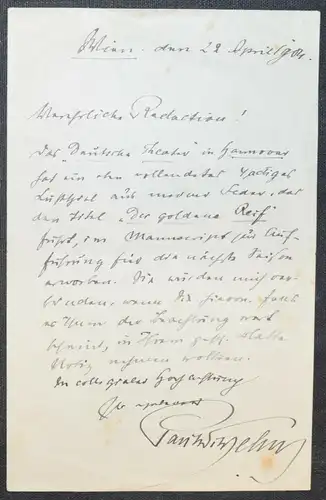 Wien. den 22 April 904.
Verehrliche Redaction!
Das "Deutsche Theater" in Hannover
hat ein eben vollendetes 4actiges
Lustspiel aus meiner Feder, das
den Titel "Der goldene Reif"
führt, im Manuscript zur Auf-
führung für die nächste Saison
erworben. Sie würden mich ver-
binden, wenn Sie hievon, falls
es Ihnen der Beachtung wert
scheint, in Ihrem gesch. Blatte
Notiz nehmen wollten.
In collegialer Hochachtung
Ihr ergebenst
Paul